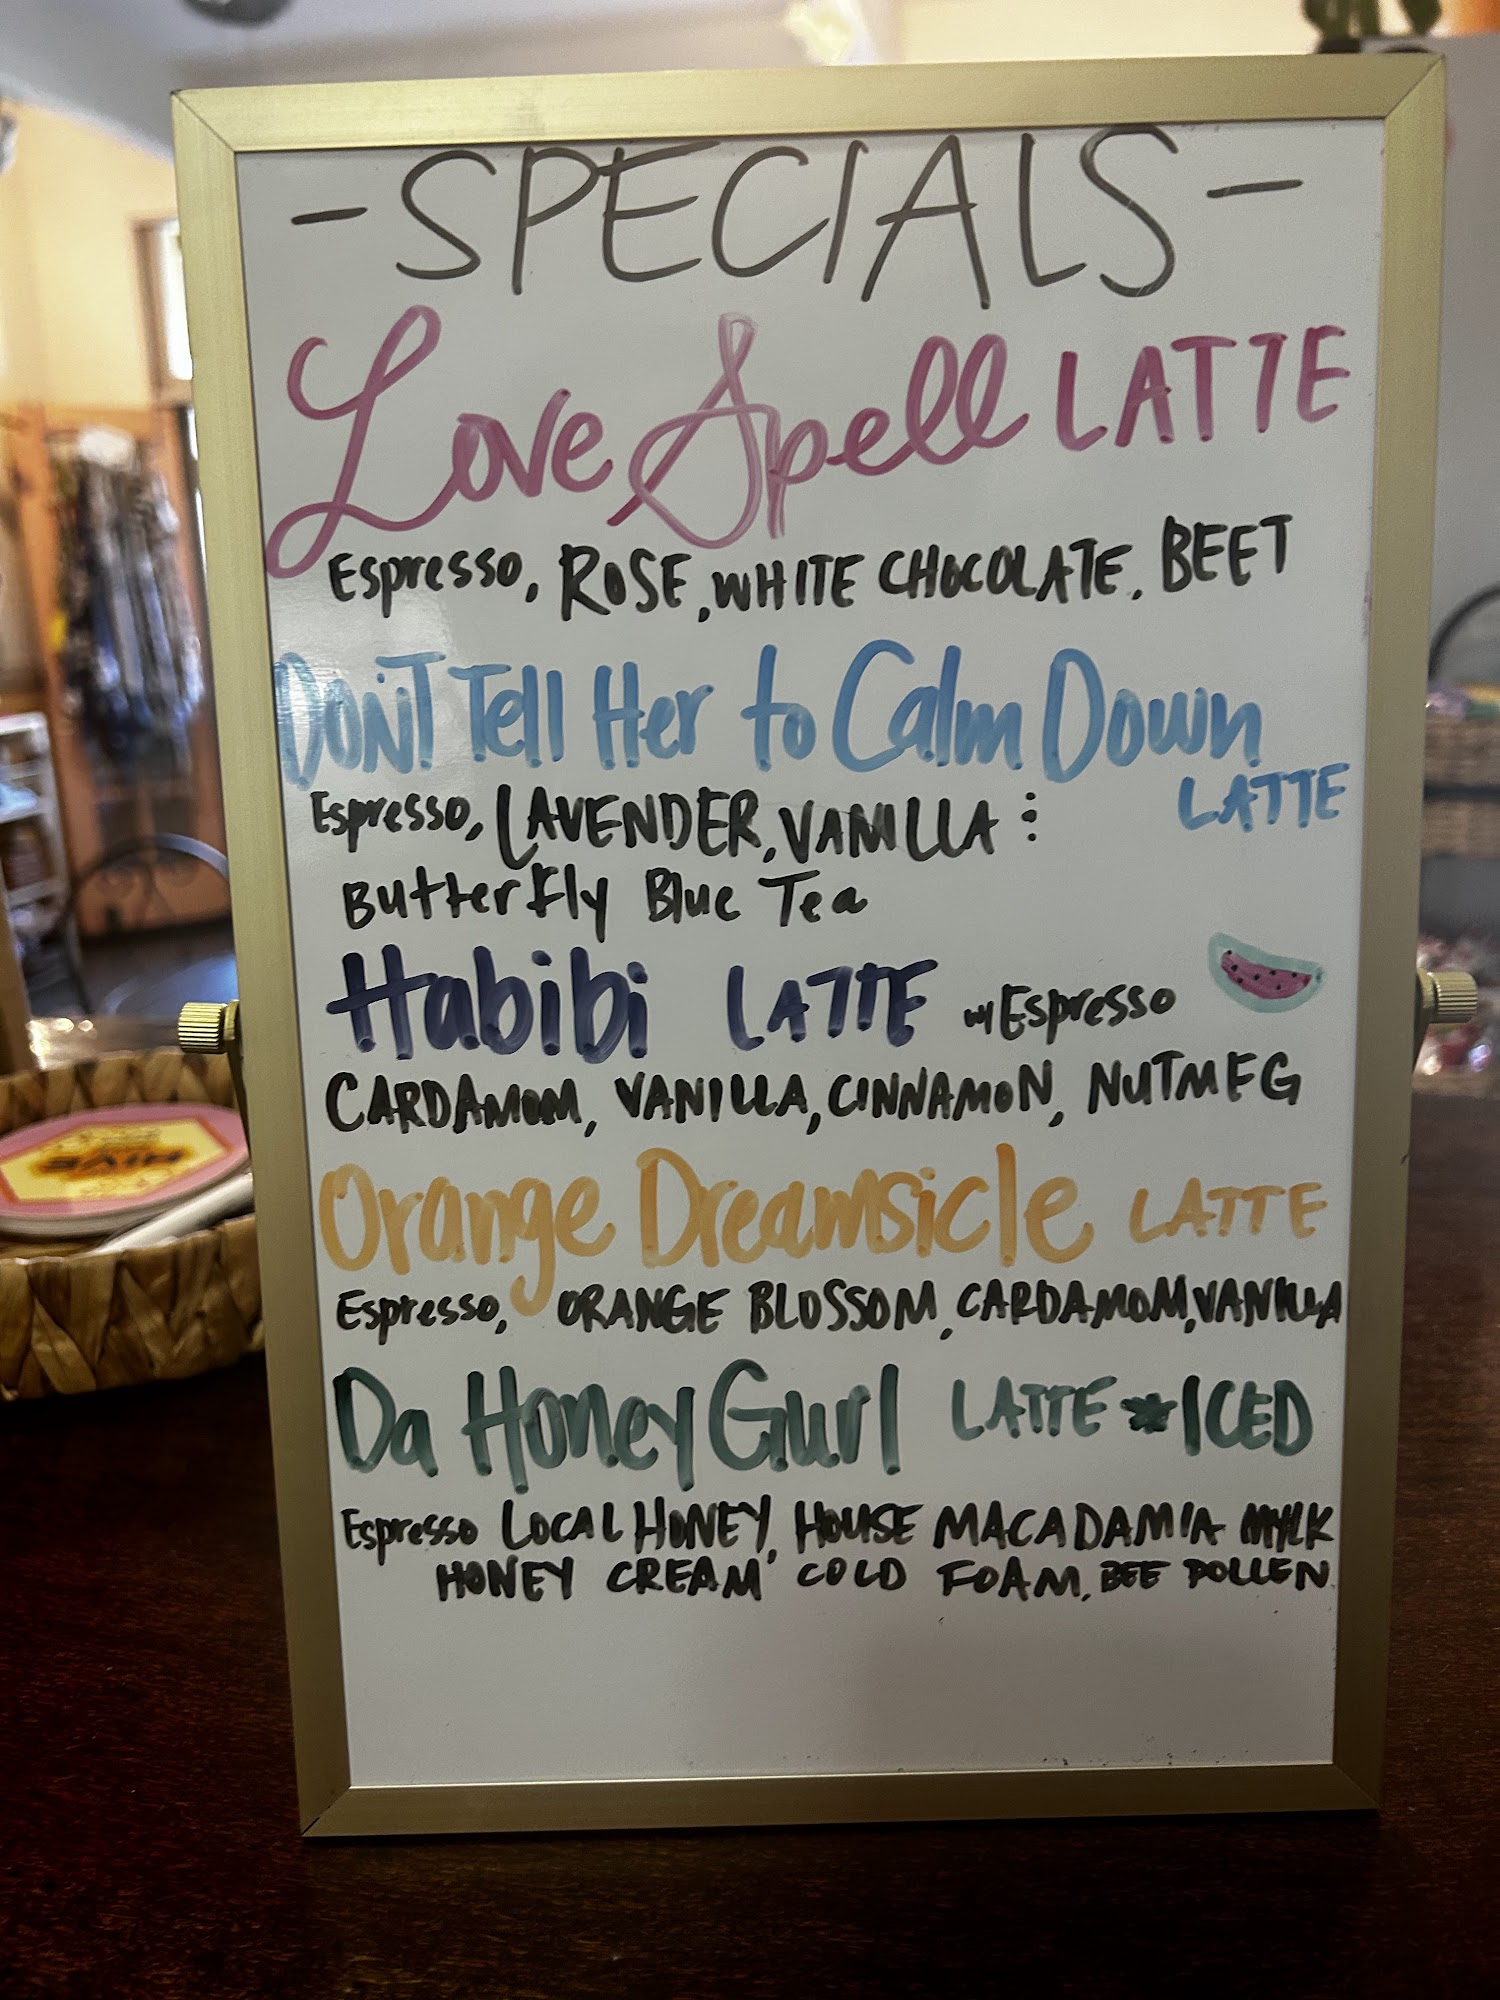 -SPECIALS-
Love Spell LATTE
Espresso, ROSE, WHITE CHOCOLATE, BEET
DON'T Tell Her to Calm Down
LATTE
Espresso, LAVENDER, VANILLA :
Butterfly Blue Tea
Habibi LATTE w/ Espresso
CARDAMOM, VANILLA, CINNAMON, NUTMEG
Orange Dreamsicle LATTE
Espresso, ORANGE BLOSSOM, CARDAMOM, VANILLA
Da Honey Gurl LATTE *ICED
Espresso LOCAL HONEY, HOUSE MACADAMIA MYLK
HONEY CREAM COLD FOAM, BEE POLLEN
HIVE